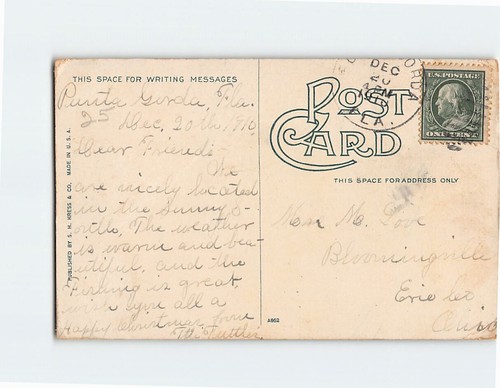 THIS SPACE FOR WRITING MESSAGES
Punta Gorda, Fla.
25
Dec. 20th 1910
Dear Friends-
We
are nicely located
in the Sunny S-
outh. The weather
is warm and bea-
utiful, and the
fishing is great
wish you all a
Happy Christmas from
The
PUBLISHED BY S. H. KRESS & CO. MADE IN U. S. A.
POST CARD
THIS SPACE FOR ADDRESS ONLY
DEC
20
1910
FLA
U.S. POSTAGE
ONE CENT
M. Love
Bloomingville
Erie Co
Ohio